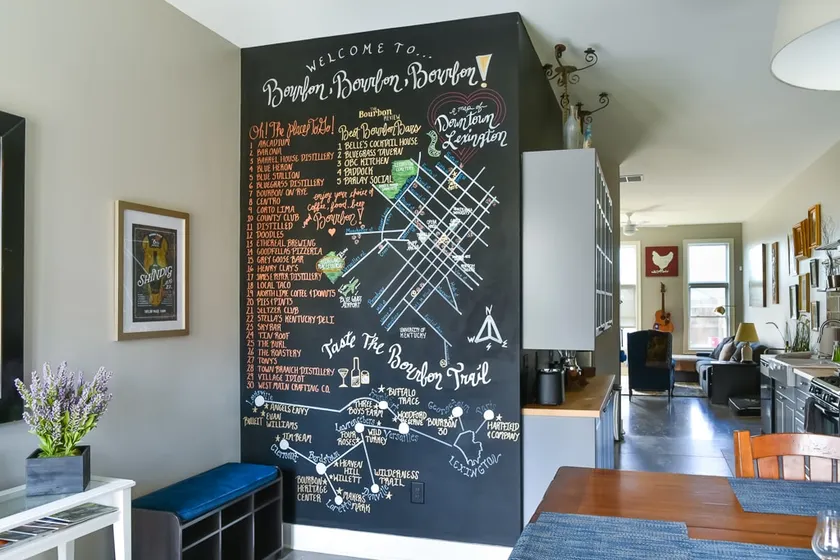 WELCOME TO...
Bourbon, Bourbon, Bourbon!
Oh! The Places To Go!
1 ARCADIUM
2 BARONA
3 BARREL HOUSE DISTILLERY
4 BLUE HERON
5 BLUE STALLION
6 BLUEGRASS DISTILLERY
7 BOURBON ON RYE
8 CENTRO
9 CORTO LIMA
10 COUNTY CLUB
11 DISTILLED
12 DOODLES
13 ETHEREAL BREWING
14 GOODFELLAS PIZZERIA
15 GREY GOOSE BAR
16 HENRY CLAY'S
17 JAMES E PEPPER DISTILLERY
18 LOCAL TACO
19 NORTH LIME COFFEE & DONUTS
20 PIES & PINTS
21 SELTZER CLUB
22 STELLA'S KENTUCKY DELI
23 SKYBAR
24 TIN ROOF
25 THE BURL
26 THE ROASTERY
27 TONY'S
28 TOWN BRANCH DISTILLERY
29 VILLAGE IDIOT
30 WEST MAIN CRAFTING CO.
THE
Bourbon
REVIEW
Best Bourbon Bars
1 BELLE'S COCKTAIL HOUSE
2 BLUEGRASS TAVERN
3 OBC KITCHEN
4 PADDOCK
5 PARLAY SOCIAL
enjoy your choice of
Coffee, food, beer
& Bourbon!
a map of
Downtown
Lexington
BLUE GRASS
AIRPORT
UNIVERSITY OF
KENTUCKY
N
Taste The Bourbon Trail
ANGEL'S ENVY
BULLEIT
EVAN
WILLIAMS
JIM BEAM
Clermont
Bardstown
BOURBON
HERITAGE
CENTER
HEAVEN
HILL
WILLETT
MAKERS
MARK
Loretto
THREE
BOYS FARM
BUFFALO
TRACE
Lawrenceburg
FOUR
ROSES
WILD
TURKEY
WOODFORD
RESERVE
Versailles
WILDERNESS
TRAIL
Georgetown
BOURBON
30
LEXINGTON
HARTFIELD
& COMPANY
SHINDIG